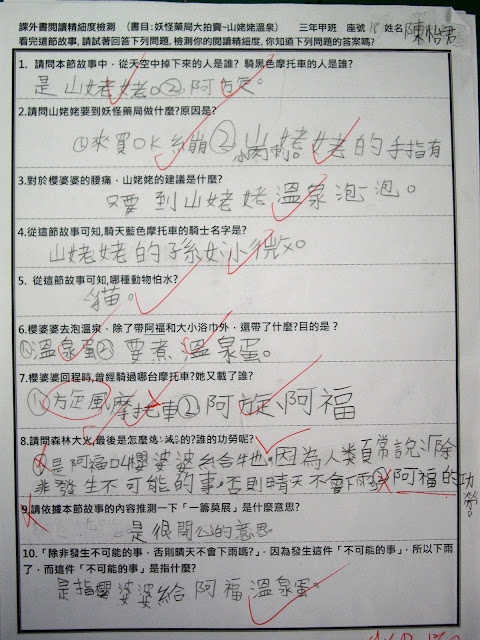 課外書閱讀精細度檢測 (書目:妖怪藥局大拍賣~山姥姥溫泉) 三年甲班 座號 18 姓名 陳怡君
看完這節故事,請試著回答下列問題,檢測你的閱讀精細度,你知道下列問題的答案嗎?
1. 請問本節故事中,從天空中掉下來的人是誰? 騎黑色摩托車的人是誰?
是山姥姥。②阿旋。
2.請問山姥姥要到妖怪藥局做什麼?原因是?
①來買OK絲崩②山姥姥的手指有
小刺。
3.對於櫻婆婆的腰痛,山姥姥的建議是什麼?
只要到山姥姥溫泉泡一泡。
4.從這節故事可知,騎天藍色摩托車的騎士名字是?
山姥姥的孫女小微。
5. 從這節故事可知,哪種動物怕水?
貓。
6.櫻婆婆去泡溫泉,除了帶阿福和大小浴巾外,還帶了什麼?目的是?
①溫泉蛋②要煮溫泉蛋。
7.櫻婆婆回程時,曾經騎過哪台摩托車?她又載了誰?
①旋風摩托車②阿旋、阿福
8.請問森林大火,最後是怎麼熄滅的?誰的功勞呢?
①是阿福叫櫻婆婆給牠,因為人類常說:除
非發生不可能的事,否則晴天不會下雨②阿福的功
勞。
9.請依據本節故事的內容推測一下「一籌莫展」是什麼意思?
是很開心的意思
10.「除非發生不可能的事,否則晴天不會下雨嗎?」,因為發生這件「不可能的事」,所以下雨
了,而這件「不可能的事」是指什麼?
是指櫻婆婆給阿福溫泉蛋。